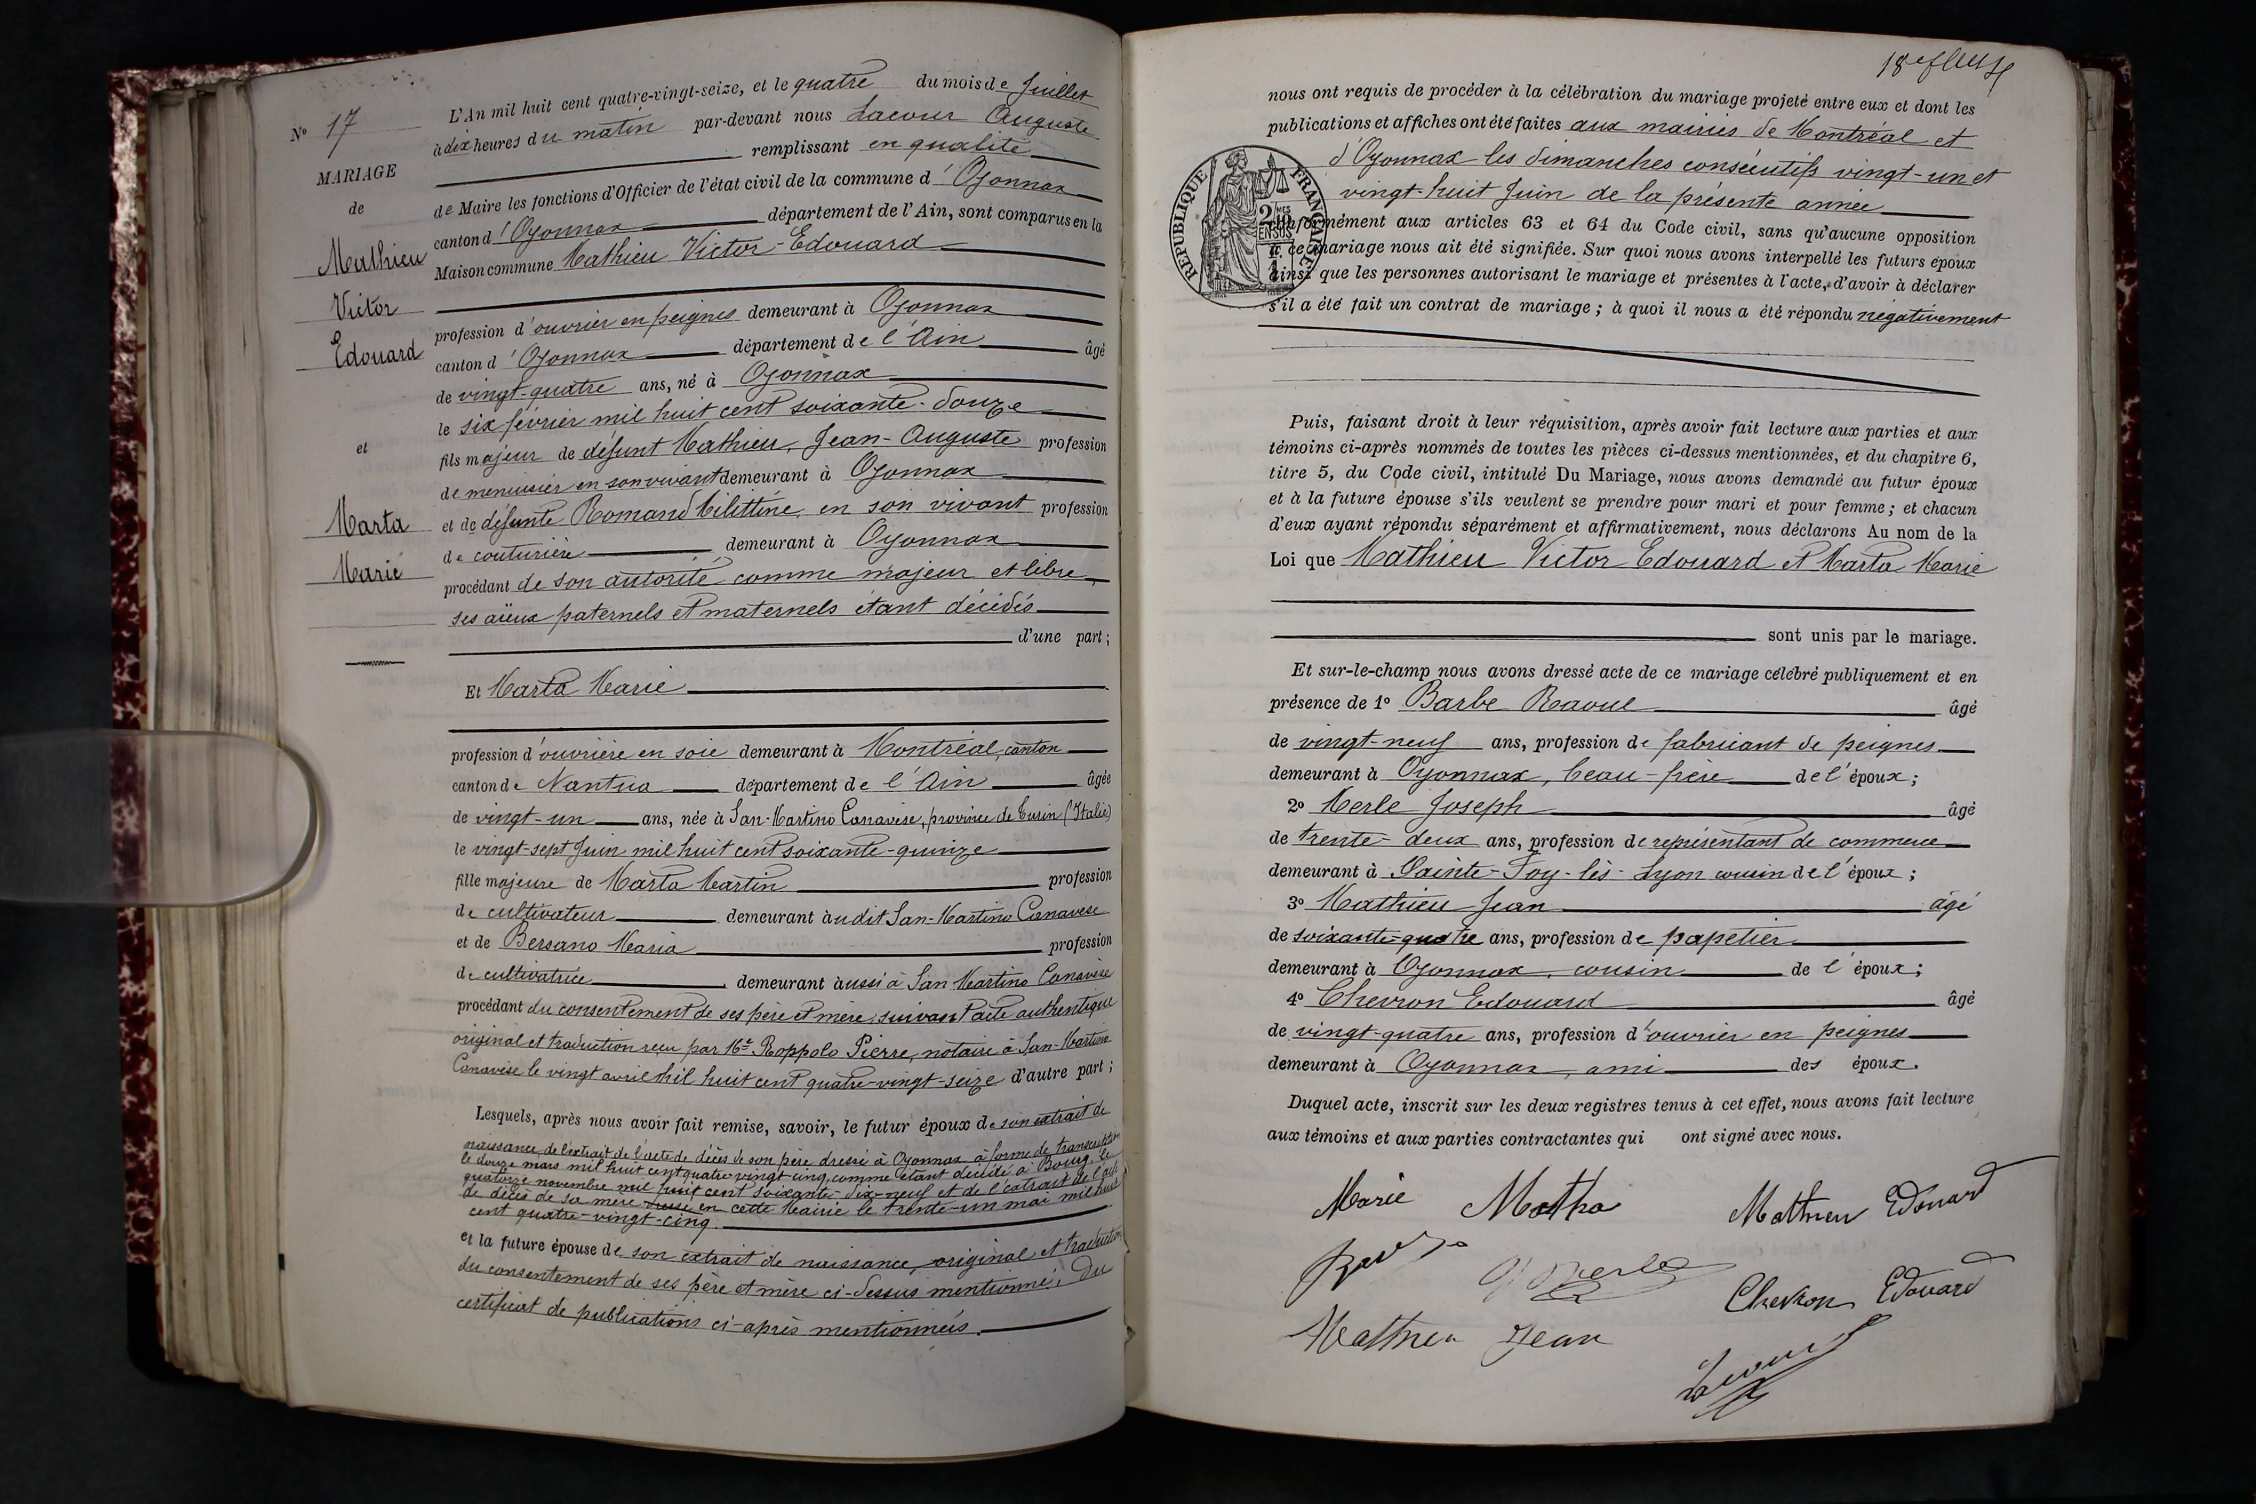 N° 17
MARIAGE
de
Mathieu
Victor
Edouard
et
Marta
Marie
L'An mil huit cent quatre-vingt-seize, et le quatre du mois de Juillet
à dix heures du matin par-devant nous Lacour Auguste
remplissant en qualité
de Maire les fonctions d'Officier de l'état civil de la commune d'Oyonnax
canton d'Oyonnax département de l'Ain, sont comparus en la
Maison commune Mathieu Victor-Edouard
profession d'ouvrier en peignes demeurant à Oyonnax
canton d'Oyonnax département de l'Ain âgé
de vingt-quatre ans, né à Oyonnax
le six février mil huit cent soixante-douze
fils majeur de défunt Mathieu, Jean-Auguste profession
de menuisier en son vivant demeurant à Oyonnax
et de défunte Romand Milittine en son vivant profession
de couturière demeurant à Oyonnax
procédant de son autorité comme majeur et libre,
ses aïeux paternels et maternels étant décédés
d'une part;
Et Marta Marie
profession d'ouvrière en soie demeurant à Montréal, canton
canton de Nantua département de l'Ain âgée
de vingt-un ans, née à San-Martino Canavese, province de Turin (Italie)
le vingt-sept Juin mil huit cent soixante-quinze
fille majeure de Marta Martin profession
de cultivateur demeurant audit San-Martino Canavese
et de Bersano Maria profession
de cultivatrice demeurant aussi à San Martino Canavese
procédant du consentement de ses père et mère, suivant acte authentique
original et traduction reçu par Me Roppolo Pierre, notaire à San-Martino
Canavese le vingt avril mil huit cent quatre-vingt-seize d'autre part;
Lesquels, après nous avoir fait remise, savoir, le futur époux de son extrait de
naissance, de l'extrait de l'acte de décès de son père dressé à Oyonnax à forme de transcription
le douze mars mil huit cent quatre-vingt-cinq, comme étant décédé à Bourg, le
quatorze novembre mil huit cent soixante-dix-neuf et de l'extrait de l'acte
de décès de sa mère dressé en cette Mairie le trente-un mai mil huit
cent quatre-vingt-cinq.
et la future épouse de son extrait de naissance, original et traduction
du consentement de ses père et mère ci-dessus mentionné; Du
certificat de publications ci-après mentionnées.
nous ont requis de procéder à la célébration du mariage projeté entre eux et dont les
publications et affiches ont été faites aux mairies de Montréal et
d'Oyonnax les dimanches consécutifs vingt-un et
vingt-huit Juin de la présente année
conformément aux articles 63 et 64 du Code civil, sans qu'aucune opposition
à ce mariage nous ait été signifiée. Sur quoi nous avons interpellé les futurs époux
ainsi que les personnes autorisant le mariage et présentes à l'acte, d'avoir à déclarer
s'il a été fait un contrat de mariage; à quoi il nous a été répondu négativement
RÉPUBLIQUE FRANÇAISE
2/10 MES
EN SUS
Puis, faisant droit à leur réquisition, après avoir fait lecture aux parties et aux
témoins ci-après nommés de toutes les pièces ci-dessus mentionnées, et du chapitre 6,
titre 5, du Code civil, intitulé Du Mariage, nous avons demandé au futur époux
et à la future épouse s'ils veulent se prendre pour mari et pour femme; et chacun
d'eux ayant répondu séparément et affirmativement, nous déclarons Au nom de la
Loi que Mathieu Victor Edouard et Marta Marie
sont unis par le mariage.
Et sur-le-champ nous avons dressé acte de ce mariage célébré publiquement et en
présence de 1° Barbe Raoul âgé
de vingt-neuf ans, profession de fabricant de peignes
demeurant à Oyonnax, beau-frère de l'époux;
2° Merle Joseph âgé
de trente-deux ans, profession de représentant de commerce
demeurant à Sainte-Foy-lès-Lyon cousin de l'époux;
3° Mathieu Jean âgé
de soixante-quatre ans, profession de papetier
demeurant à Oyonnax, cousin de l'époux;
4° Chevron Edouard âgé
de vingt-quatre ans, profession d'ouvrier en peignes
demeurant à Oyonnax, ami des époux.
Duquel acte, inscrit sur les deux registres tenus à cet effet, nous avons fait lecture
aux témoins et aux parties contractantes qui ont signé avec nous.
Marie Matha Mathieu Edouard
Merle
Chevron Edouard
Mathieu Jean